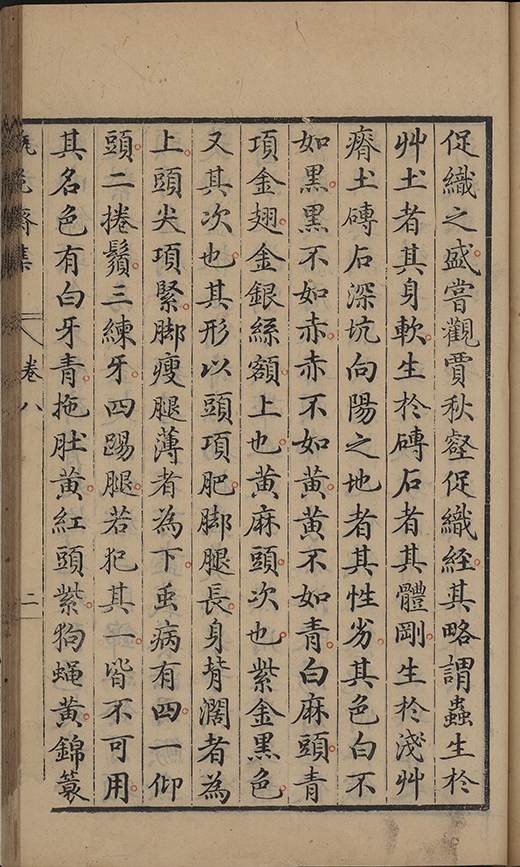 促織之盛嘗觀賈秋壑促織經其略謂蟲生於
艸土者其身軟生於磚石者其體剛生於淺艸
瘠土磚石深坑向陽之地者其性劣其色白不
如黑黑不如赤赤不如黄黄不如青白麻頭青
項金翅金銀絲額上也黄麻頭次也紫金黑色
又其次也其形以頭項肥脚腿長身背濶者為
上頭尖項緊脚瘦腿薄者為下䖝病有四一仰
頭二捲鬚三練牙四踢腿若犯其一皆不可用
其名色有白牙青拖肚黄紅頭紫狗蝇黄錦蓑
齋集
卷八
二